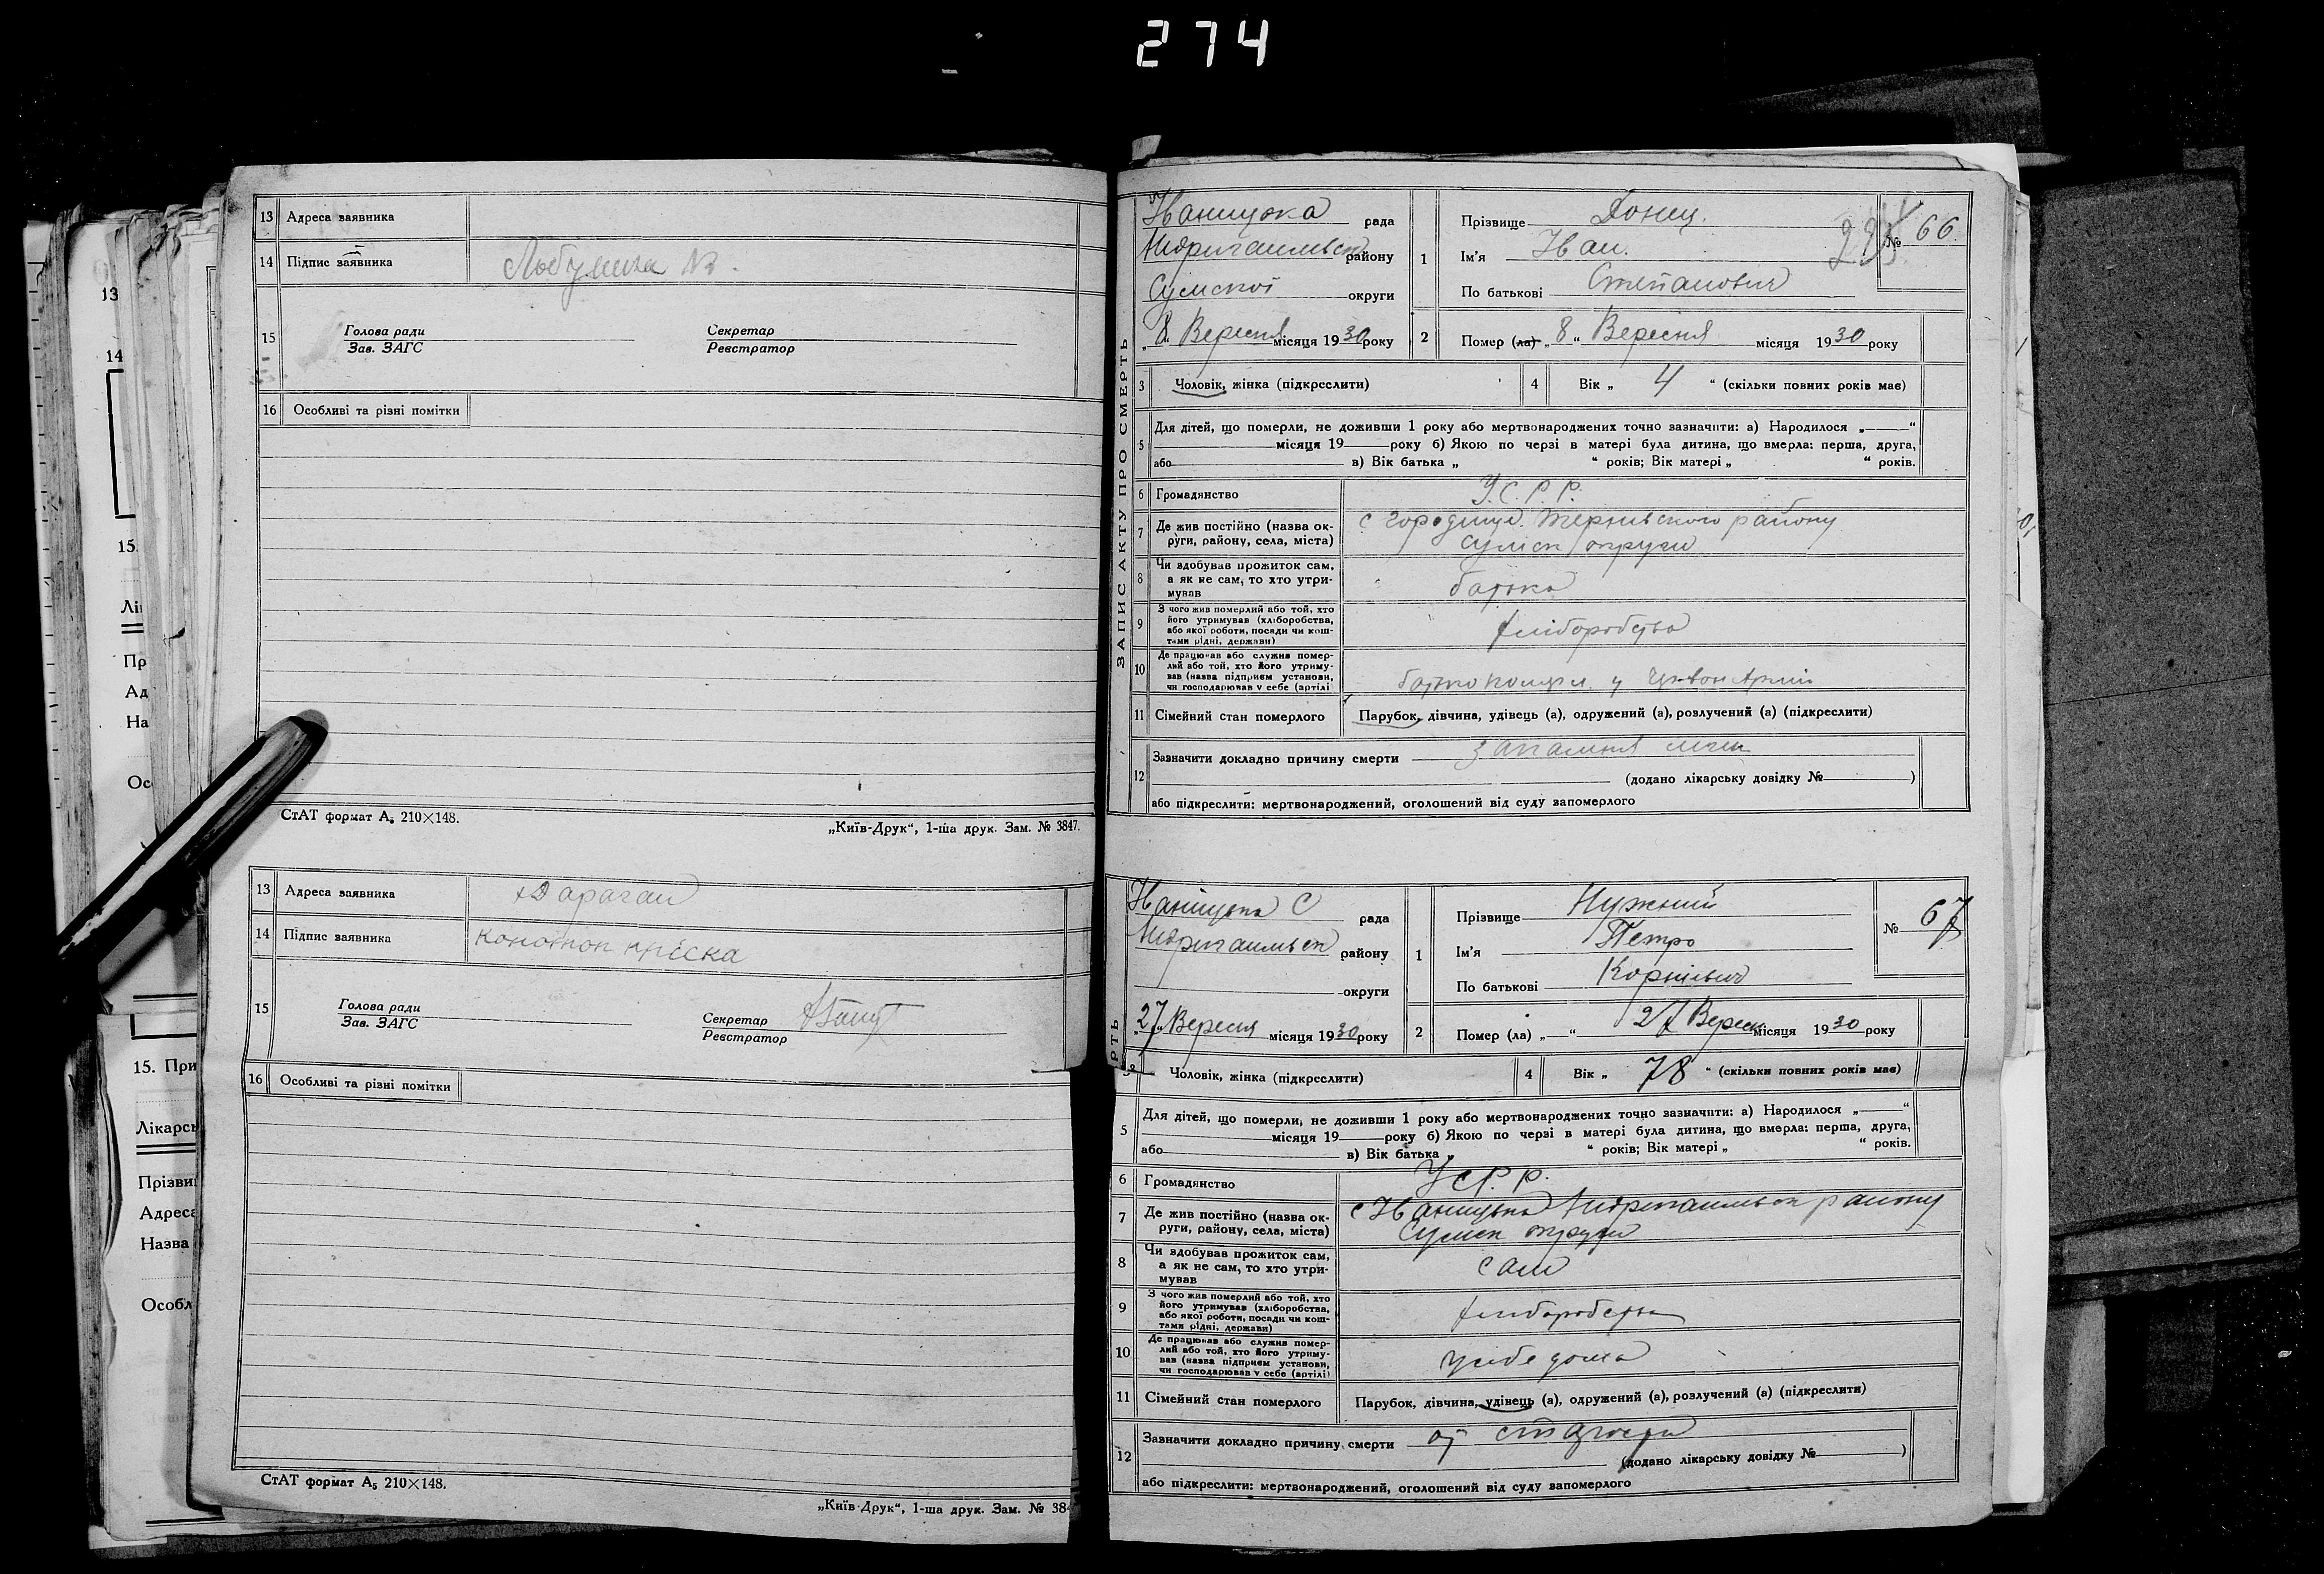 274
13 Адреса заявника
14 Підпис заявника
15 Голова ради Секретар
Зав. ЗАГС Реєстратор
16 Особливі та різні помітки
СтАТ формат А5 210×148.
„Київ-Друк“, 1-ша друк. Зам. № 3847.
13 Адреса заявника Дараган
14 Підпис заявника Конотоп
15 Голова ради Секретар
Зав. ЗАГС Реєстратор
16 Особливі та різні помітки
СтАТ формат А5 210×148.
„Київ-Друк“, 1-ша друк. Зам. № 384
13
14
15.
Лі
Пр
Ад
На
Ос
15. При
Лікарсь
Прізви
Адреса
Назва
Особл
ЗАПИС АКТУ ПРО СМЕРТЬ
Іваницька рада
району
Сумської округи
„8“ Вересня місяця 1930 року
1 Прізвище Донец.
Ім'я Іван.
По батькові Степанович
№ 66
2 Помер (ла) „8“ Вересня місяця 1930 року
3 Чоловік, жінка (підкреслити)
4 Вік „4“ (скільки повних років має)
5 Для дітей, що померли, не доживши 1 року або мертвонароджених точно зазначити: а) Народилося „ “
місяця 19 року б) Якою по черзі в матері була дитина, що вмерла: перша, друга,
або в) Вік батька „ “ років; Вік матері „ “ років.
6 Громадянство У.С.Р.Р.
7 Де жив постійно (назва округи, району, села, міста) с Городище. Тернівського району
Сумск округи
8 Чи здобував прожиток сам,
а як не сам, то хто утри-
мував батько
9 З чого жив померлий або той, хто
його утримував (хліборобства,
або якої роботи, посади чи кош-
тами рідні, держави) хліборобства
10 Де працював або служив помер-
лий або той, хто його утриму-
вав (назва підприєм установи,
чи господарював у себе (артілі) батько
11 Сімейний стан померлого Парубок, дівчина, удівець (а), одружений (а), розлучений (а) (підкреслити)
12 Зазначити докладно причину смерти запалення
(додано лікарську довідку № )
або підкреслити: мертвонароджений, оголошений від суду запомерлого
РТЬ
Іваницька С рада
району
округи
„27“ Вересня місяця 1930 року
1 Прізвище Нужний
Ім'я Петро
По батькові Корнієвич
№ 67
2 Помер (ла) „ “ 27 Вересн місяця 1930 року
3 Чоловік, жінка (підкреслити)
4 Вік „ 78 “ (скільки повних років має)
5 Для дітей, що померли, не доживши 1 року або мертвонароджених точно зазначити: а) Народилося „ “
місяця 19 року б) Якою по черзі в матері була дитина, що вмерла: перша, друга,
або в) Вік батька „ “ років; Вік матері „ “ років.
6 Громадянство УСР.Р.
7 Де жив постійно (назва ок-
руги, району, села, міста) с Іваницька району
Сумск округи
8 Чи здобував прожиток сам,
а як не сам, то хто утри-
мував сам
9 З чого жив померлий або той, хто
його утримував (хліборобства,
або якої роботи, посади чи кош-
тами рідні, держави) хліборобства
10 Де працював або служив помер-
лий або той, хто його утриму-
вав (назва підприєм установи,
чи господарював у себе (артілі) у себе дома
11 Сімейний стан померлого Парубок, дівчина, удівець (а), одружений (а), розлучений (а) (підкреслити)
12 Зазначити докладно причину смерти от старости
(додано лікарську довідку № )
або підкреслити: мертвонароджений, оголошений від суду запомерлого